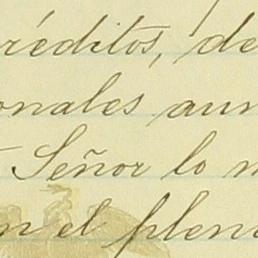 réditos, de
onales aun
Señor lo
en el plen